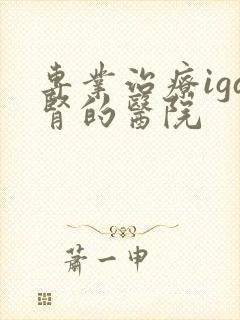 專業治療iga
腎的醫院
蕭一申